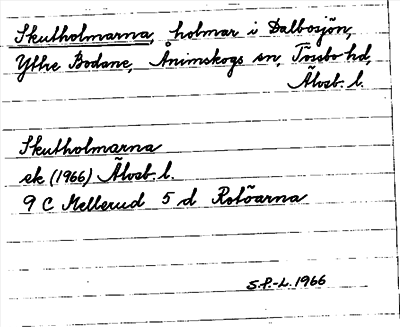 Skutholmarna, holmar i Dalbosjön,
Yttre Bodane, Ånimskogs sn, Tössbo hd,
Älvsb. l.
Skutholmarna
ek (1966) Älvsb. l.
9 C Mellerud 5 d Rotöarna
S.P.-L. 1966